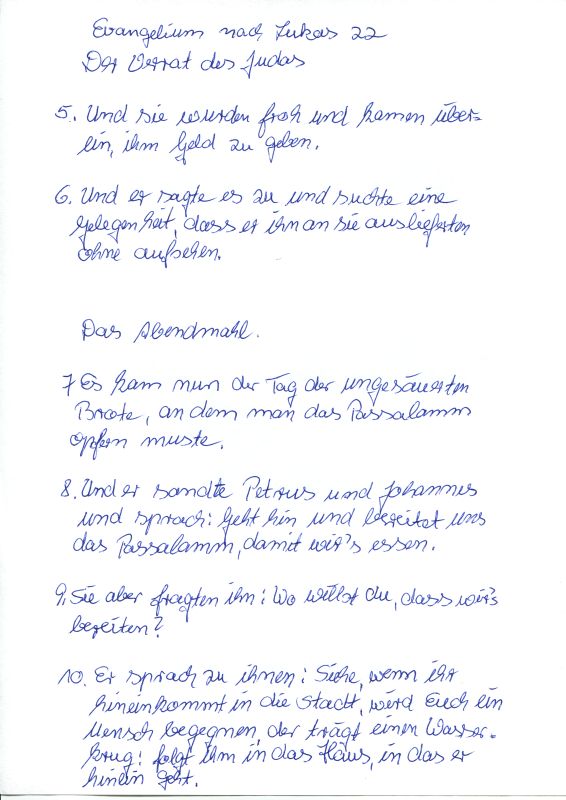 Evangelium nach Lukas 22
Der Verrat des Judas
5. Und sie wurden froh und kamen über-
ein, ihm Geld zu geben.
6. Und er sagte es zu und suchte eine
Gelegenheit, dass er ihn an sie auslieferten
ohne aufsehen.
Das Abendmahl.
7 Es kam nun der Tag der ungesäuerten
Brote, an dem man das Passalamm
opfern muste.
8. Und er sandte Petrus und Johannes
und sprach: Geht hin und bereitet uns
das Passalamm, damit wir's essen.
9. Sie aber fragten ihn: Wo willst du, dass wir's
bereiten?
10. Er sprach zu ihnen: Siehe, wenn ihr
hineinkommt in die Stadt, wird Euch ein
Mensch begegnen, der trägt einen Wasser-
krug: folgt ihm in das Haus, in das er
hinein geht.